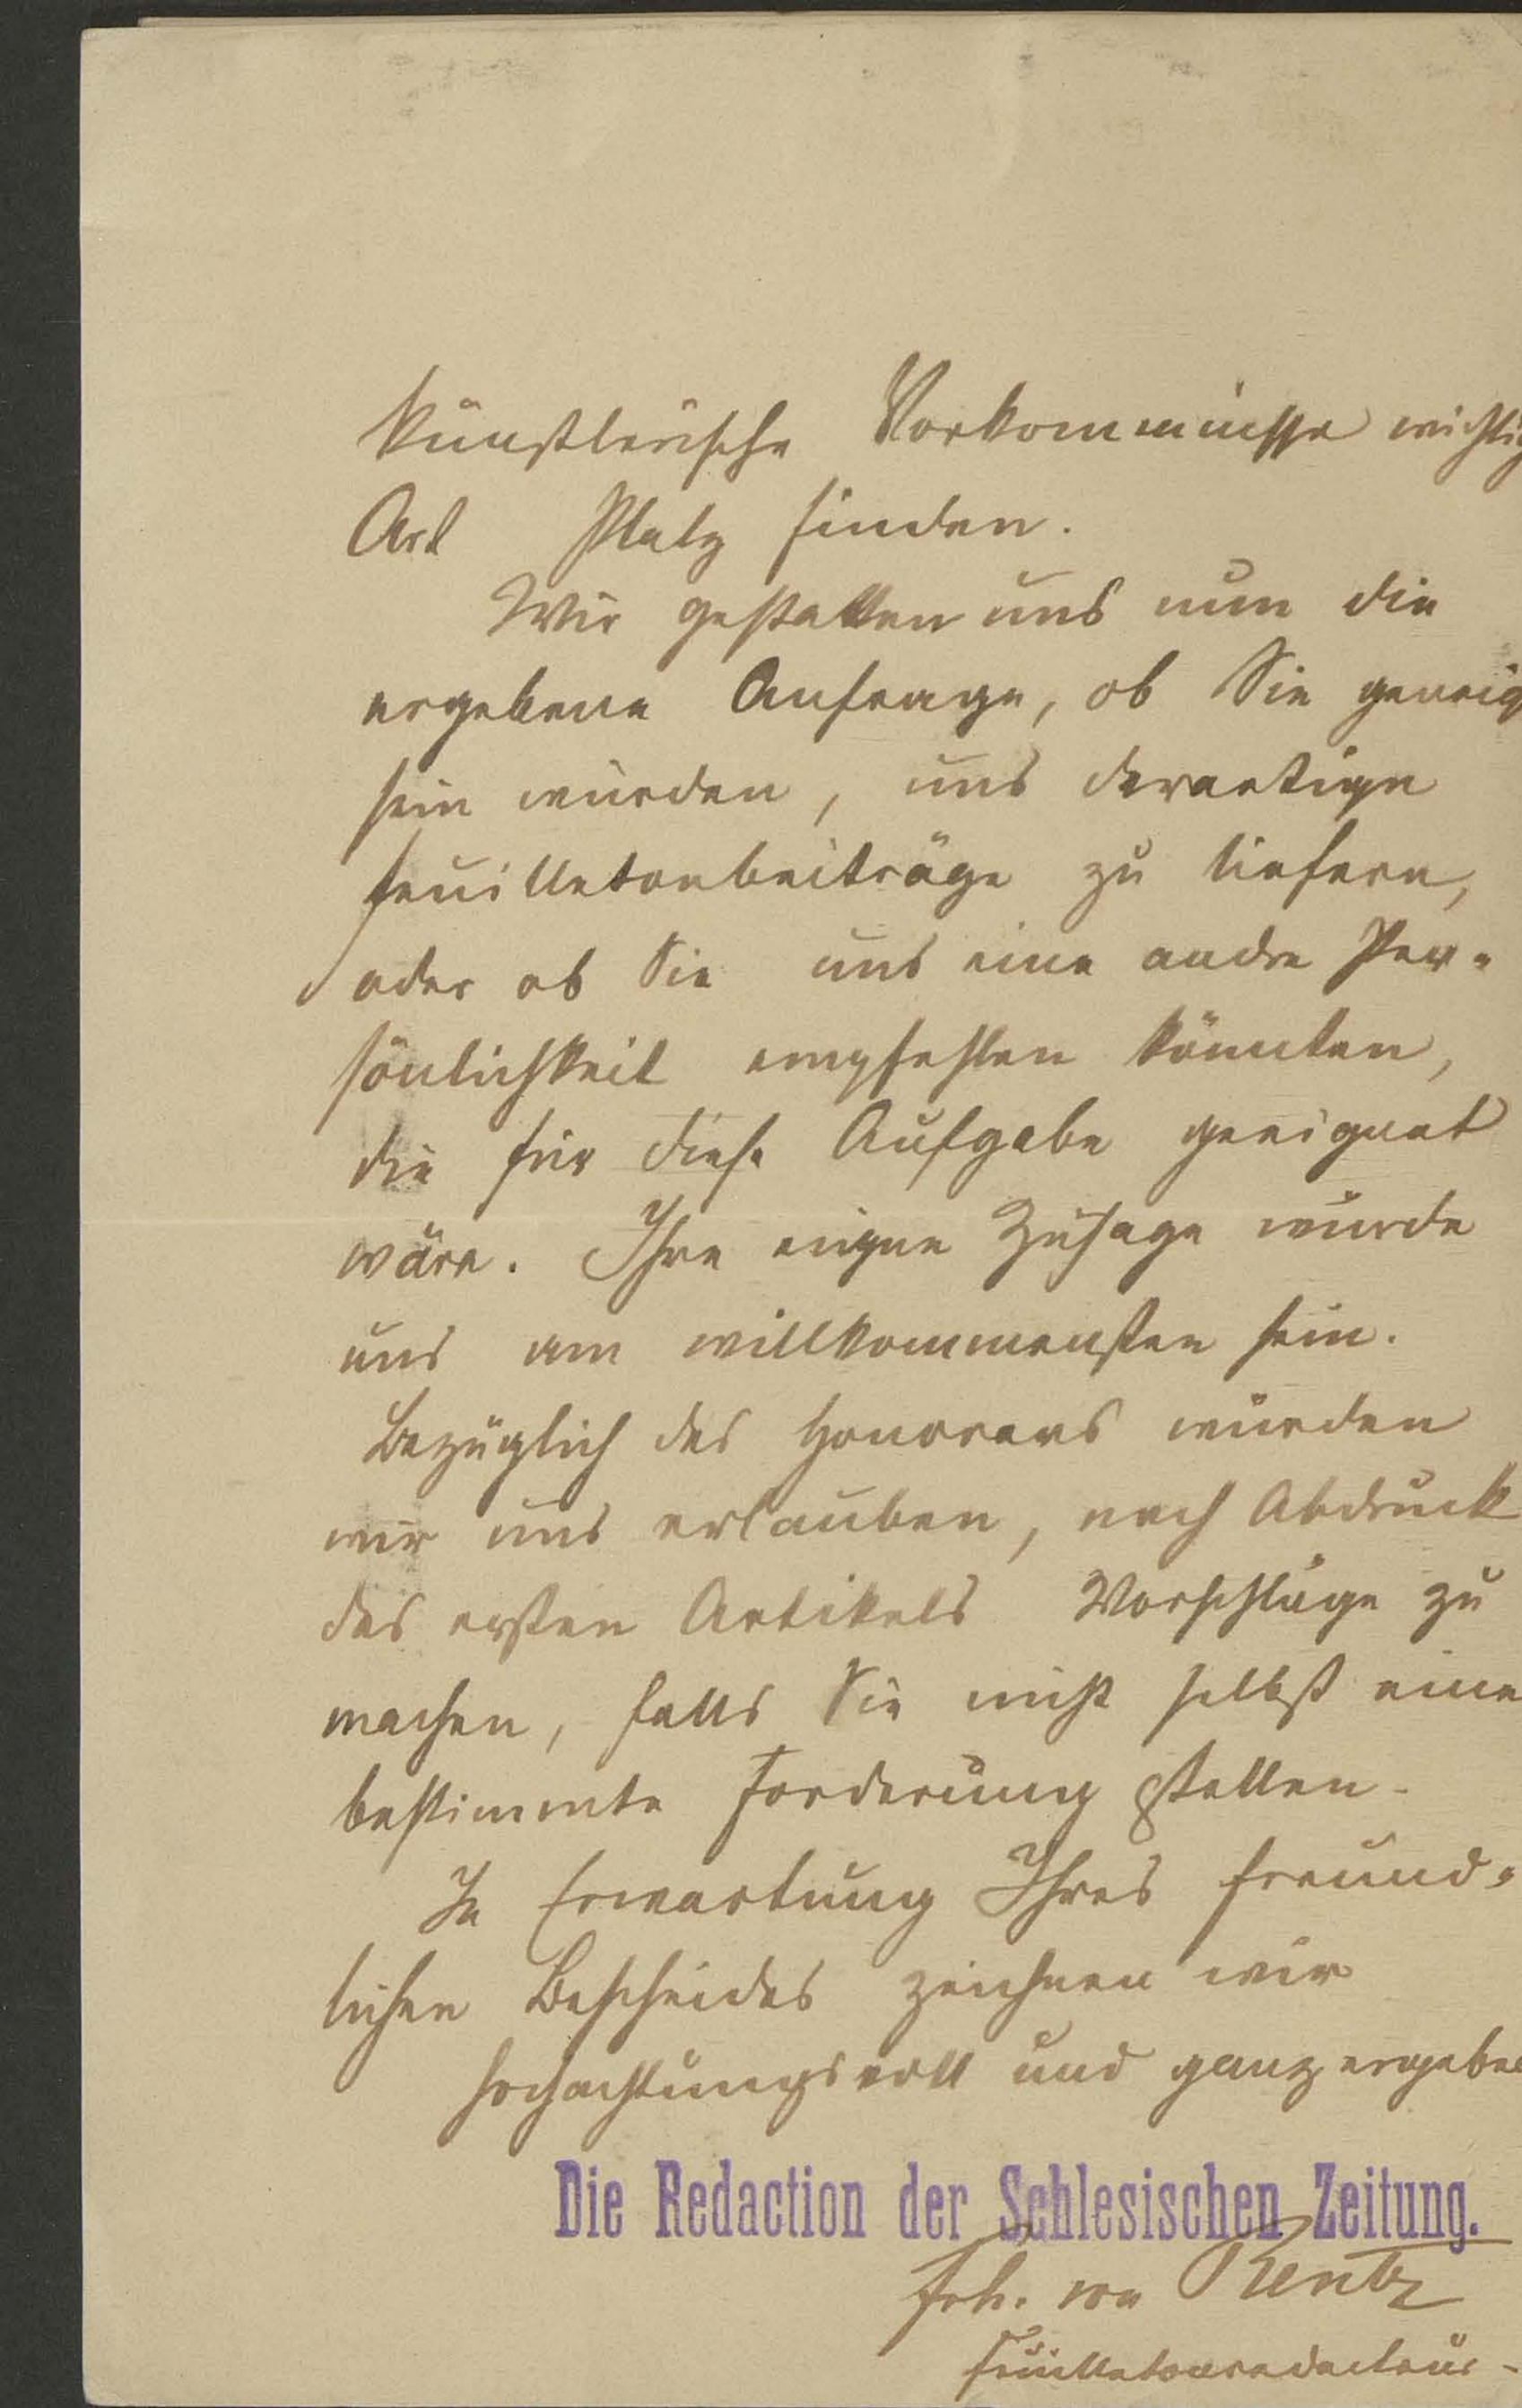 künstlerische Vorkommnisse wichtig
Art Platz finden.
Wir gestatten uns nun die
ergebene Anfrage, ob Sie geneig
sein würden, uns derartige
Feuilletonbeiträge zu liefern,
oder ob Sie uns eine andre Per-
sönlichkeit empfehlen könnten,
die für diese Aufgabe geeignet
wäre. Ihre eigene Zusage würde
uns am willkommensten sein.
Bezüglich des Honorars würden
wir uns erlauben, nach Abdruck
des ersten Artikels Vorschläge zu
machen, falls Sie nicht selbst eine
bestimmte Forderung stellen.
In Erwartung Ihres freund-
lichen Bescheides zeichnen wir
hochachtungsvoll und ganz ergeben
Die Redaction der Schlesischen Zeitung.
Frh. von Rentz
Feuilletonredacteur.